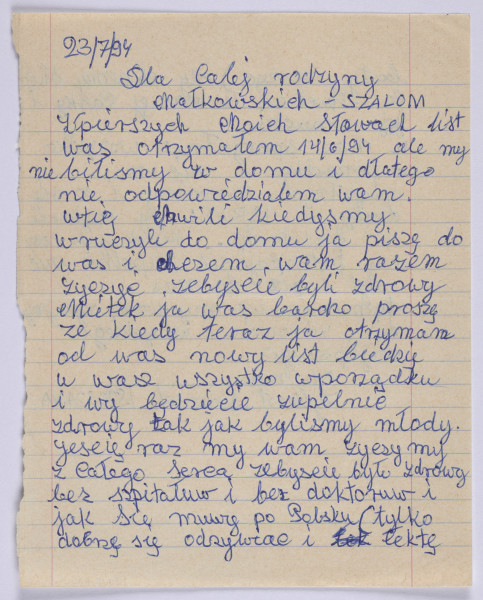 23/7/94
Dla Całej rodzyny
Małkowskich - SZALOM
Zpierszych Moich Słowach list
was otrzymałem 14/6/94 ale my
nie biliśmy w domu i dlatego
nie odpowiedziałem wam.
wtię chwili kiedyśmy
wruczyli do domu ja piszę do
was i chczem wam razem
życzyć żebyscie byli zdrowy
Mietek ja was bardzo proszę
że kiedy teraz ja otrzymam
od was nowy list biedzie
u wasz wszystko wporządku
i wy będziecie zupełnie
zdrowy tak jak byliśmy młody.
Jescię raz my wam życzymy
z Całego Serca żebyscie było zdrowy
bez szpitaluw i bez doktoruw i
jak się muwy po Polsku (tylko
dobrzę się odzywiac i lektę